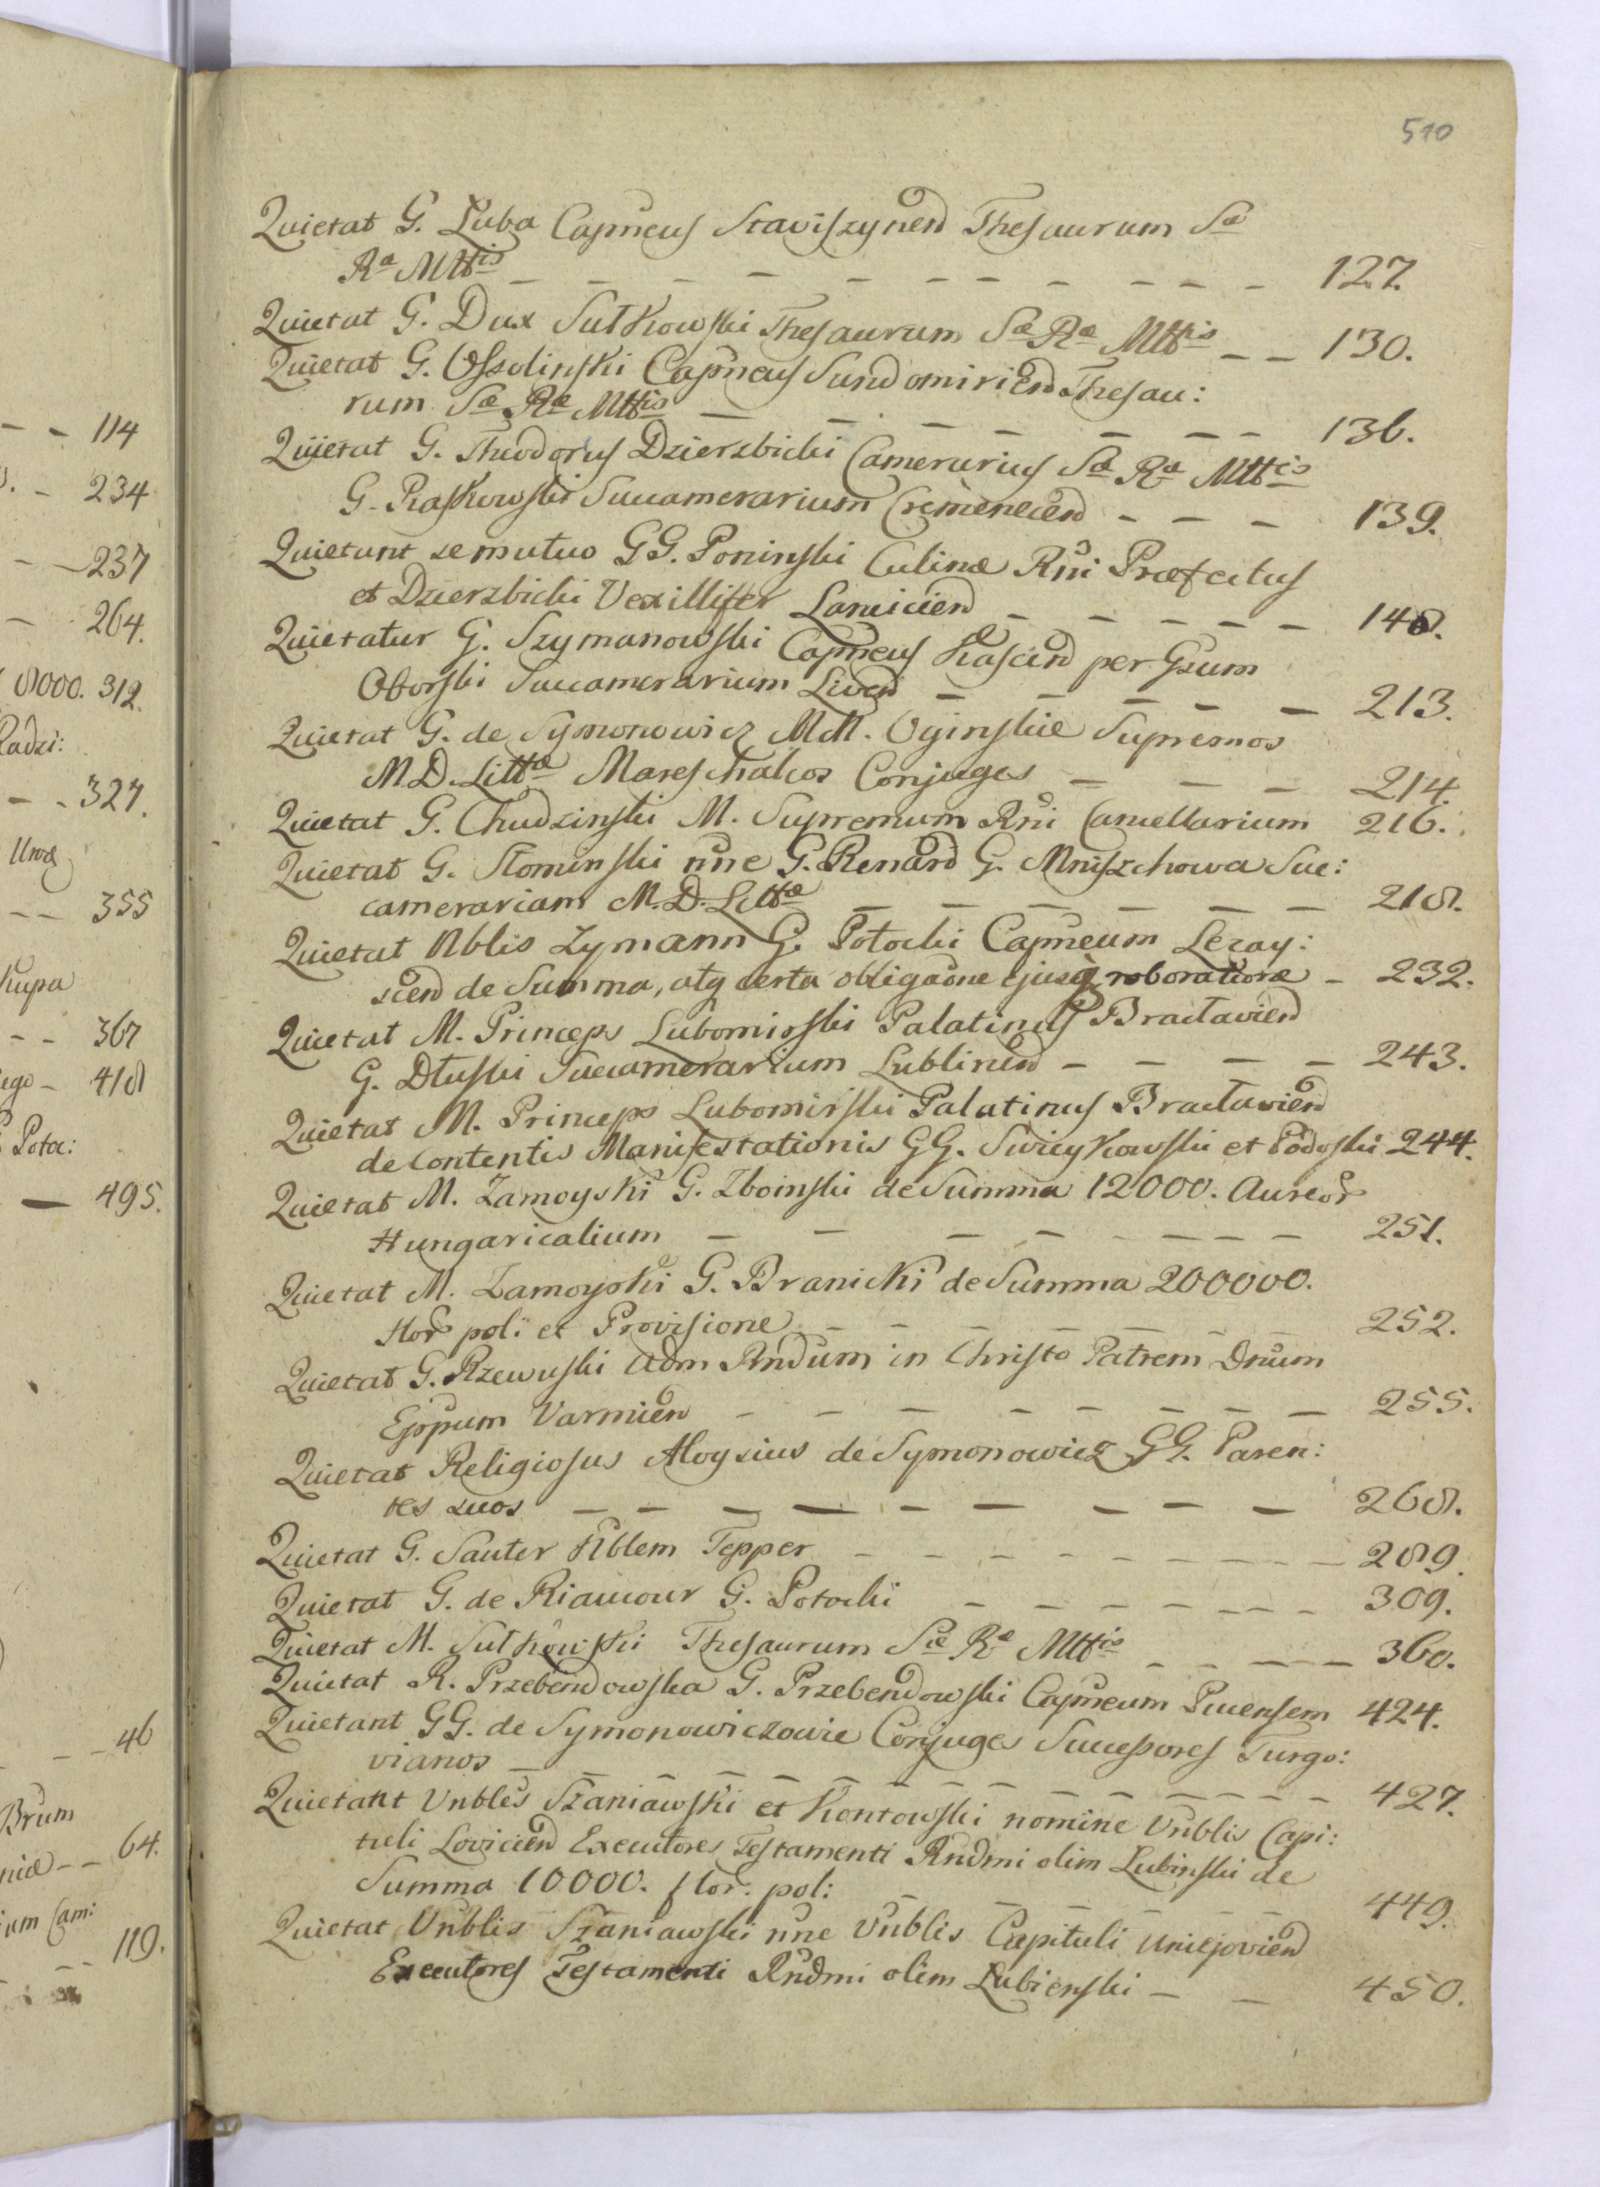 510
Quietat G. Luba Capneus Staviszynen Thesaurum Sæ
Ræ Mttis - - - - - - - - - - 127.
Quietat G. Dux Sułkowski Thesaurum Sæ Ræ Mttis - - 130.
Quietat G. Ossolinski Capneus Sundomirien Thesau:
rum Sæ Ræ Mttis - - - - - - - 136.
Quietat G. Theodorus Dzierzbicki Camerarius Sæ Ræ Mttis
G. Raszkowski Succamerarium Cremenecen - - - 139.
Quietant se mutuo GG. Poninski Culinæ Rni Præfectus
et Dzierzbicki Vexillifer Lancicien - - - - - 148.
Quietatur G. Szymanowski Capneus per Gsum
Oborski Succamerarium Liven - - - - - 213.
Quietat G. de Symonowicz MM. Oginskie Supremos
M.D. Littæ Mareschalcos Conjuges - - - 214.
Quietat G. Chudzinski M. Supremum Rni Cancellarium 216.
Quietat G. Słominski nne G. Renard G. Mniszchowa Suc:
camerariam M.D. Littæ - - - - - - 218.
Quietat Nblis Zymann G. Potocki Capneum Lezay:
scen de Summa, atq certa obligaone ejusq roboratione - 232.
Quietat M. Princeps Lubomirski Palatinus Bracłavien
G. Dłuski Succamerarium Lublinen - - - - 243.
Quietat M. Princeps Lubomirski Palatinus Bracłavien
de Contentis Manifestationis GG. Swieykowski et Podoski 244.
Quietat M. Zamoyski G. Zboinski de Summa 12000. Aureor
Hungaricalium - - - - - - - - 251.
Quietat M. Zamoyski G. Branicki de Summa 200000.
flor pol: et Provisione - - - - - - - 252.
Quietat G. Rzewuski Adm Rndum in Christo Patrem Dnum
Eppum Varmien - - - - - - - - 255.
Quietat Religiosus Aloysius de Symonowicz GG. Paren:
tes suos - - - - - - - - - 268.
Quietat G. Sauter Nblem Tepper - - - - - - - - - 289.
Quietat G. de Riaucour G. Potocki - - - - - - - - 309.
Quietat M. Sułkowski Thesaurum Sæ Ræ Mttis - - - - - 360.
Quietat R. Przebendowska G. Przebendowski Capneum Pucensem 424.
Quietant GG. de Symonowiczowie Conjuges Successores Turgo:
vianos - - - - - - - - - - - - 427.
Quietant Vnbles Szaniawski et Kontowski nomine Vnblis Capi:
tuli Lovicien Executores Testamenti Rndmi olim Lubinski de
Summa 10000. flor. pol: - - - - - 449.
Quietat Vnblis Szaniawski nne Vnblis Capituli Uniejovien
Executores Testamenti Rndmi olim Lubienski - - 450.
- - 114
- 234
- - 237
- 264.
8000. 312.
Radzi:
- - 327.
- - 355
Kupa
- - 367
- 418
Pota:
- 495.
- - 46
Brum
- - 64.
Cam:
- - 119.